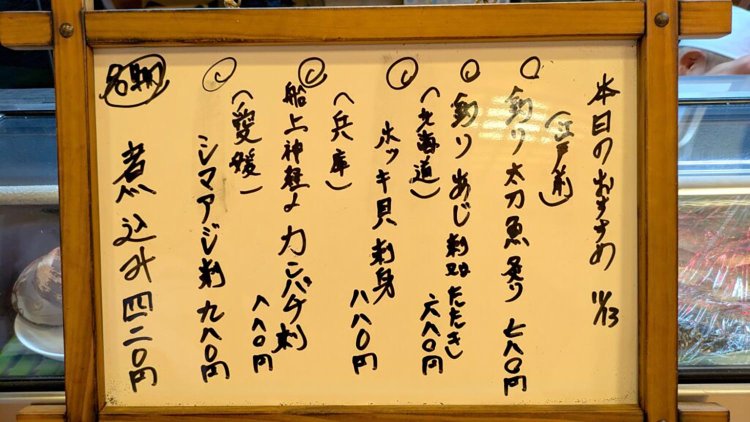 本日のおすすめ 11/13
(江戸前)
釣り太刀魚炙り 七八〇円
釣りあじ刺 たたき 六八〇円
(北海道)
ホッキ貝刺身 八八〇円
(兵庫)
船上神経〆カンパチ刺 八八〇円
(愛媛)
シマアジ刺 九八〇円
名物
煮込み四二〇円